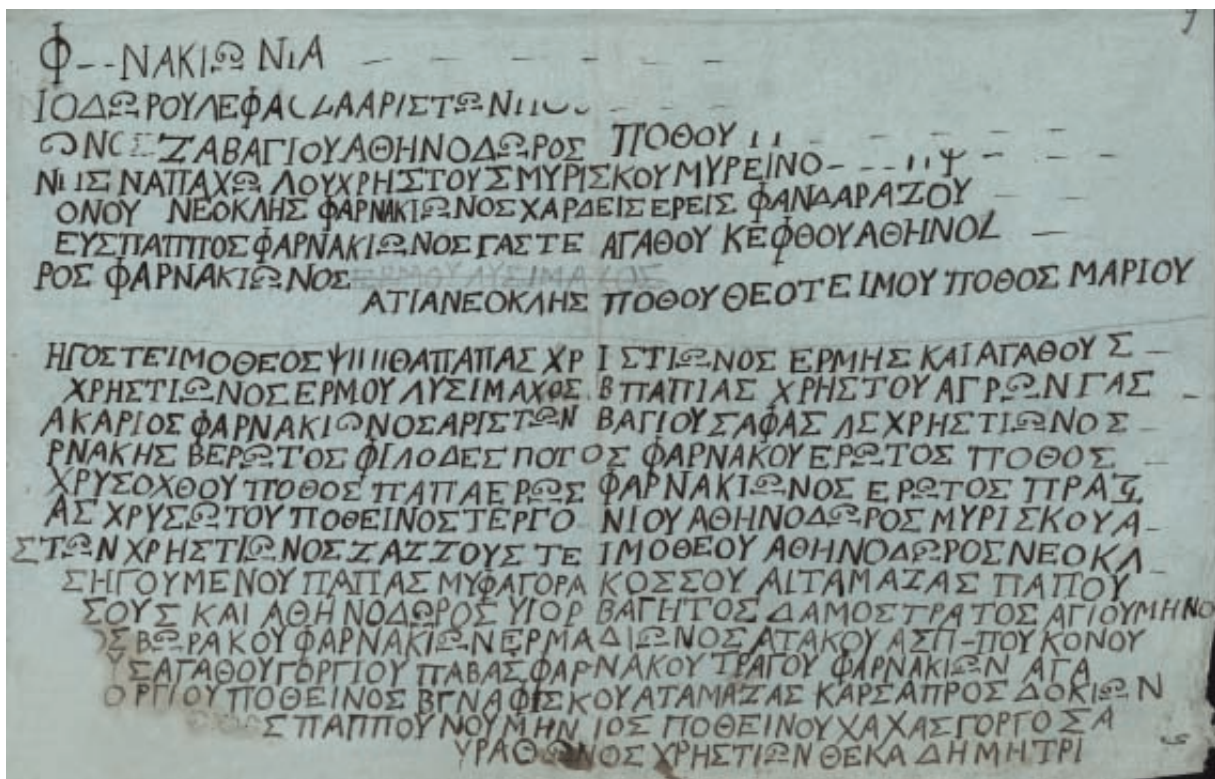 Φ--ΝΑΚΙΩΝΙΑ
ΙΟΔΩΡΟΥΛΕΦΑ ΑΑΡΙΣΤΩΝ
ΩΝΟΣΖΑΒΑΓΙΟΥΑΘΗΝΟΔΩΡΟΣ ΠΟΘΟΥ
ΝΙΙΣΝΑΠΑΧΩ ΛΟΥΧΡΗΣΤΟΥΣΜΥΡΙΣΚΟΥΜΥΡΕΙΝΟ---ΙΙΨ
ΟΝΟΥ ΝΕΟΚΛΗΣ ΦΑΡΝΑΚΙΩΝΟΣΧΑΡΔΕΙΣΕΡΕΙΣ ΦΑΝΔΑΡΑΖΟΥ
ΕΥΣΠΑΠΠΟΣΦΑΡΝΑΚΙΩΝΟΣΓΑΣΤΕ ΑΓΑΘΟΥ ΚΕΦΘΟΥΑΘΗΝΟΔ
ΡΟΣ ΦΑΡΝΑΚΙΩΝΟΣ
ΑΤΙΑΝΕΟΚΛΗΣ ΠΟΘΟΥΘΕΟΤΕΙΜΟΥ ΠΟΘΟΣ ΜΑΡΙΟΥ
ΗΓΟΣΤΕΙΜΟΘΕΟΣΨΙΙΙΙΘΑΠΑΠΑΣΧΡ ΙΣΤΙΩΝΟΣ ΕΡΜΗΣ ΚΑΙΑΓΑΘΟΥΣ
ΧΡΗΣΤΙΩΝΟΣΕΡΜΟΥΛΥΣΙΜΑΧΟΣ ΒΠΑΠΙΑΣ ΧΡΗΣΤΟΥΑΓΡΩΝΓΑΣ
ΑΚΑΡΙΟΣΦΑΡΝΑΚΙΩΝΟΣΑΡΙΣΤΩΝ ΒΑΓΙΟΥΣΑΦΑΣ ΛΣΧΡΗΣΤΙΩΝΟΣ
ΡΝΑΚΗΣ ΒΕΡΩΤΟΣ ΦΙΛΟΔΕΣΠΟΤΟΣ ΦΑΡΝΑΚΟΥΕΡΩΤΟΣ ΠΟΘΟΣ
ΧΡΥΣΟΧΘΟΥΠΟΘΟΣΠΑΠΑΕΡΩΣ ΦΑΡΝΑΚΙΩΝΟΣ ΕΡΩΤΟΣ ΠΡΑΞ
ΑΣΧΡΥΣΩΤΟΥΠΟΘΕΙΝΟΣΤΕΡΓΟ ΝΙΟΥΑΘΗΝΟΔΩΡΟΣΜΥΡΙΣΚΟΥΑ
ΣΤΩΝΧΡΗΣΤΙΩΝΟΣΖΑΖΖΟΥΣΤΕ ΙΜΟΘΕΟΥΑΘΗΝΟΔΩΡΟΣΝΕΟΚΛ
ΣΗΓΟΥΜΕΝΟΥΠΑΠΑΣΜΥΦΑΓΟΡΑ ΚΟΣΣΟΥ ΑΙΤΑΜΑΖΑΣ ΠΑΠΟΥ
ΣΟΥΣ ΚΑΙΑΘΗΝΟΔΩΡΟΣΥΙΟΡ ΒΑΓΗΤΟΣΔΑΜΟΣΤΡΑΤΟΣΑΓΙΟΥΜΗΝΟ
ΟΣΒΩΡΑΚΟΥΦΑΡΝΑΚΙΩΝΕΡΜΑΔΙΩΝΟΣΑΤΑΚΟΥΑΣΠ-ΠΟΥΚΟΝΟΥ
ΥΣΑΓΑΘΟΥΓΟΡΓΙΟΥΠΑΒΑΣΦΑΡΝΑΚΟΥΤΡΑΓΟΥΦΑΡΝΑΚΙΩΝ ΑΓΑ
ΟΡΓΙΟΥΠΟΘΕΙΝΟΣΒΓΝΑΦΙΣΚΟΥΑΤΑΜΑΖΑΣ ΚΑΡΣΑΠΡΟΣΔΟΚΙΩΝ
Σ ΠΑΠΠΟΥΝΟΥΜΗΝΙΟΣ ΠΟΘΕΙΝΟΥΧΑΧΑΣΓΟΡΓΟΣΑ
ΥΡΑΘΩΝΟΣΧΡΗΣΤΙΩΝΘΕΚΑΔΗΜΗΤΡΙ